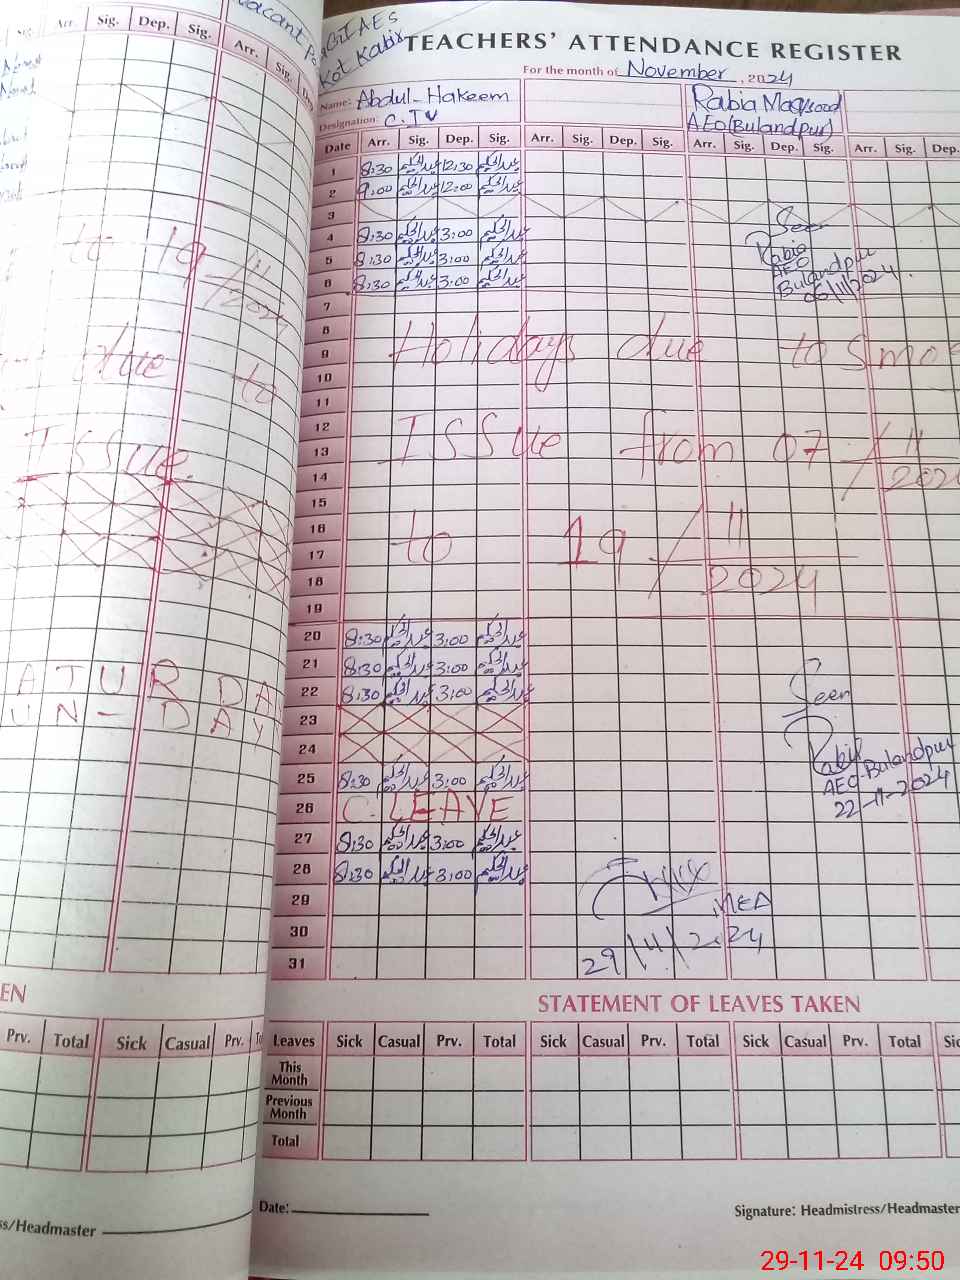 TEACHERS' ATTENDANCE REGISTER
For the month of November, 2024
Kot Kabir
Name: Abdul-Hakeem
Designation: C.IV
Rabia Maqsood
AEO (Bulandpur)
Date Arr. Sig. Dep. Sig. Arr. Sig. Dep. Sig. Arr. Sig. Dep. Sig. Arr. Sig. Dep.
1 8:30 عبدالحکیم 12:30 عبدالحکیم
2 9:00 عبدالحکیم 12:00 عبدالحکیم
3
4 8:30 عبدالحکیم 3:00 عبدالحکیم
5 8:30 عبدالحکیم 3:00 عبدالحکیم
6 8:30 عبدالحکیم 3:00 عبدالحکیم
Seen
Rabia
AEO
Bulandpur
06/11/2024
7
8
9 Holidays due to Smo
10
11
12
13 ISSue from 07/11/2024
14
15
16
17 to 19/11/2024
18
19
20 8:30 عبدالحکیم 3:00 عبدالحکیم
21 8:30 عبدالحکیم 3:00 عبدالحکیم
22 8:30 عبدالحکیم 3:00 عبدالحکیم
23
24
Seen
Rabia
AEO-Bulandpur
22-11-2024
25 8:30 عبدالحکیم 3:00 عبدالحکیم
26 C. LEAVE
27 8:30 عبدالحکیم 3:00 عبدالحکیم
28 8:30 عبدالحکیم 3:00 عبدالحکیم
29
30
31
MEA
29/11/2024
STATEMENT OF LEAVES TAKEN
Leaves Sick Casual Prv. Total Sick Casual Prv. Total Sick Casual Prv. Total Sic
This Month
Previous Month
Total
Date:
Signature: Headmistress/Headmaster
Arr. Sig. Dep. Sig. Arr. Sig.
to 19/11/2024
due to
ISSue
ATURDA
UN-DAY
EN
Prv. Total Sick Casual Prv.
ss/Headmaster
29-11-24 09:50